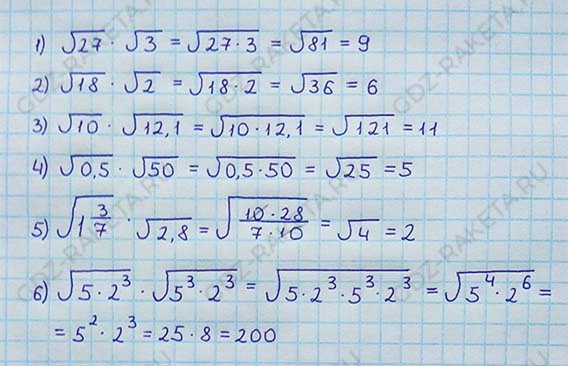 1) √27 · √3 = √27·3 = √81 = 9
2) √18 · √2 = √18·2 = √36 = 6
3) √10 · √12,1 = √10·12,1 = √121 = 11
4) √0,5 · √50 = √0,5·50 = √25 = 5
5) √1 3/7 · √2,8 = √10·28/7·10 = √4 = 2
6) √5·2³ · √5³·2³ = √5·2³·5³·2³ = √5⁴·2⁶ =
= 5²·2³ = 25·8 = 200
GDZ-RAKETA.RU